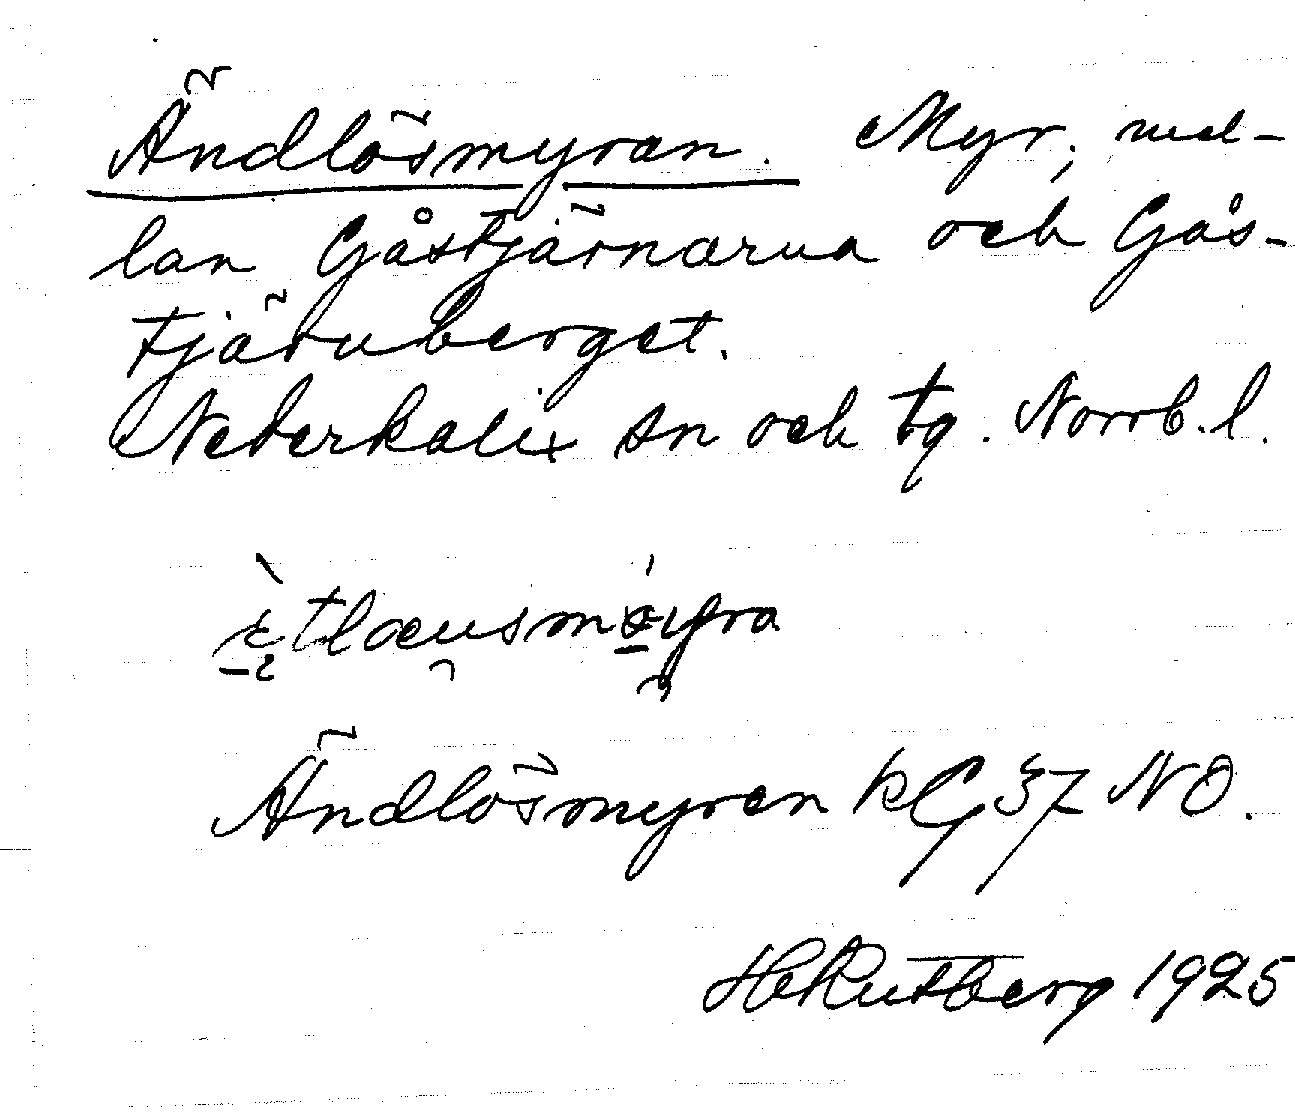 Ändlösmyran. Myr, mel-
lan Gåstjärnarna och Gås-
tjärnberget.
Nederkalix sn och tg. Norrb. l.
Ändlösmyren KG 37 NO.
H Rutberg 1925